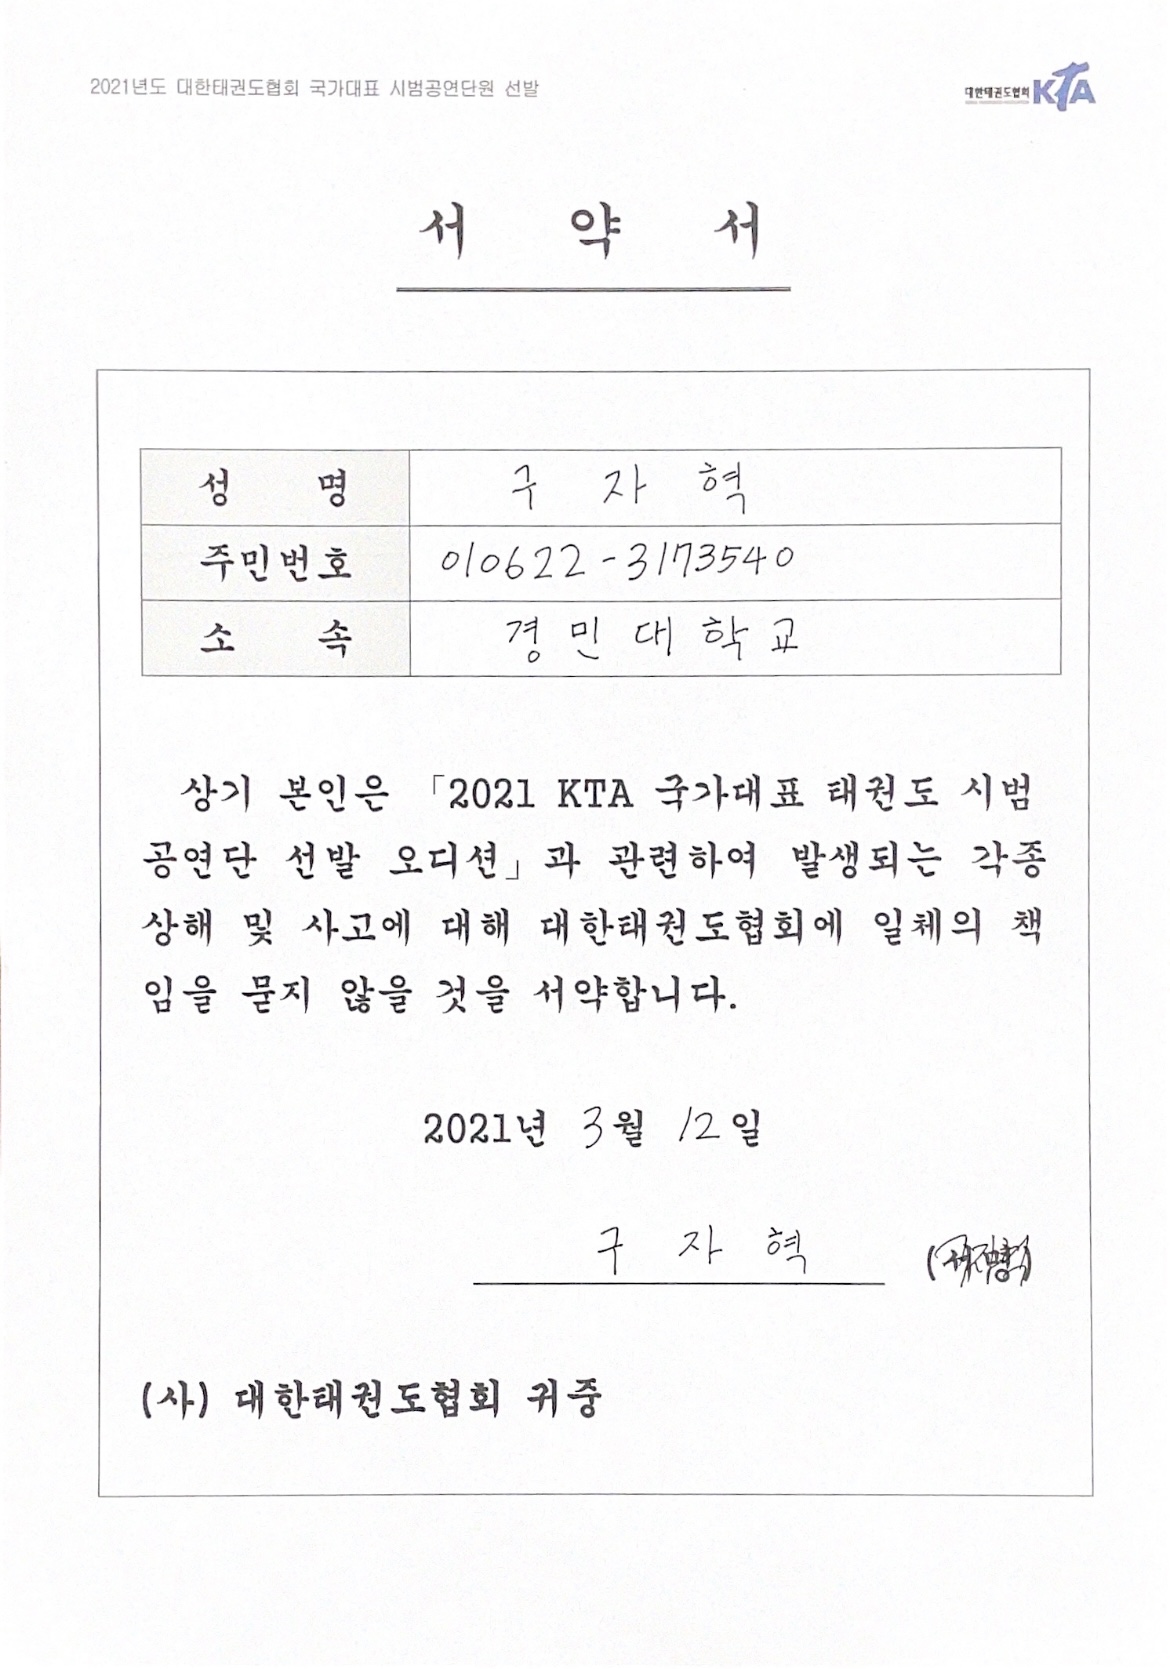 2021년도 대한태권도협회 국가대표 시범공연단원 선발
대한태권도협회 KTA
서 약 서
성 명 구 자 혁
주민번호 010622-3173540
소 속 경 민 대 학 교
상기 본인은 「2021 KTA 국가대표 태권도 시범
공연단 선발 오디션」과 관련하여 발생되는 각종
상해 및 사고에 대해 대한태권도협회에 일체의 책
임을 묻지 않을 것을 서약합니다.
2021년 3월 12일
구 자 혁 (서명)
(사) 대한태권도협회 귀중